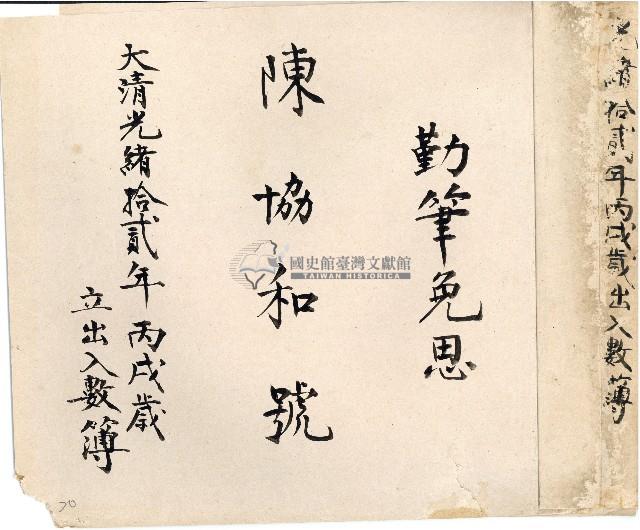 光緒拾貳年丙戌歲出入數簿
勤筆免思
陳協和號
大清光緒拾貳年丙戌歲
立出入數簿
國史館臺灣文獻館
TAIWAN HISTORICA
70